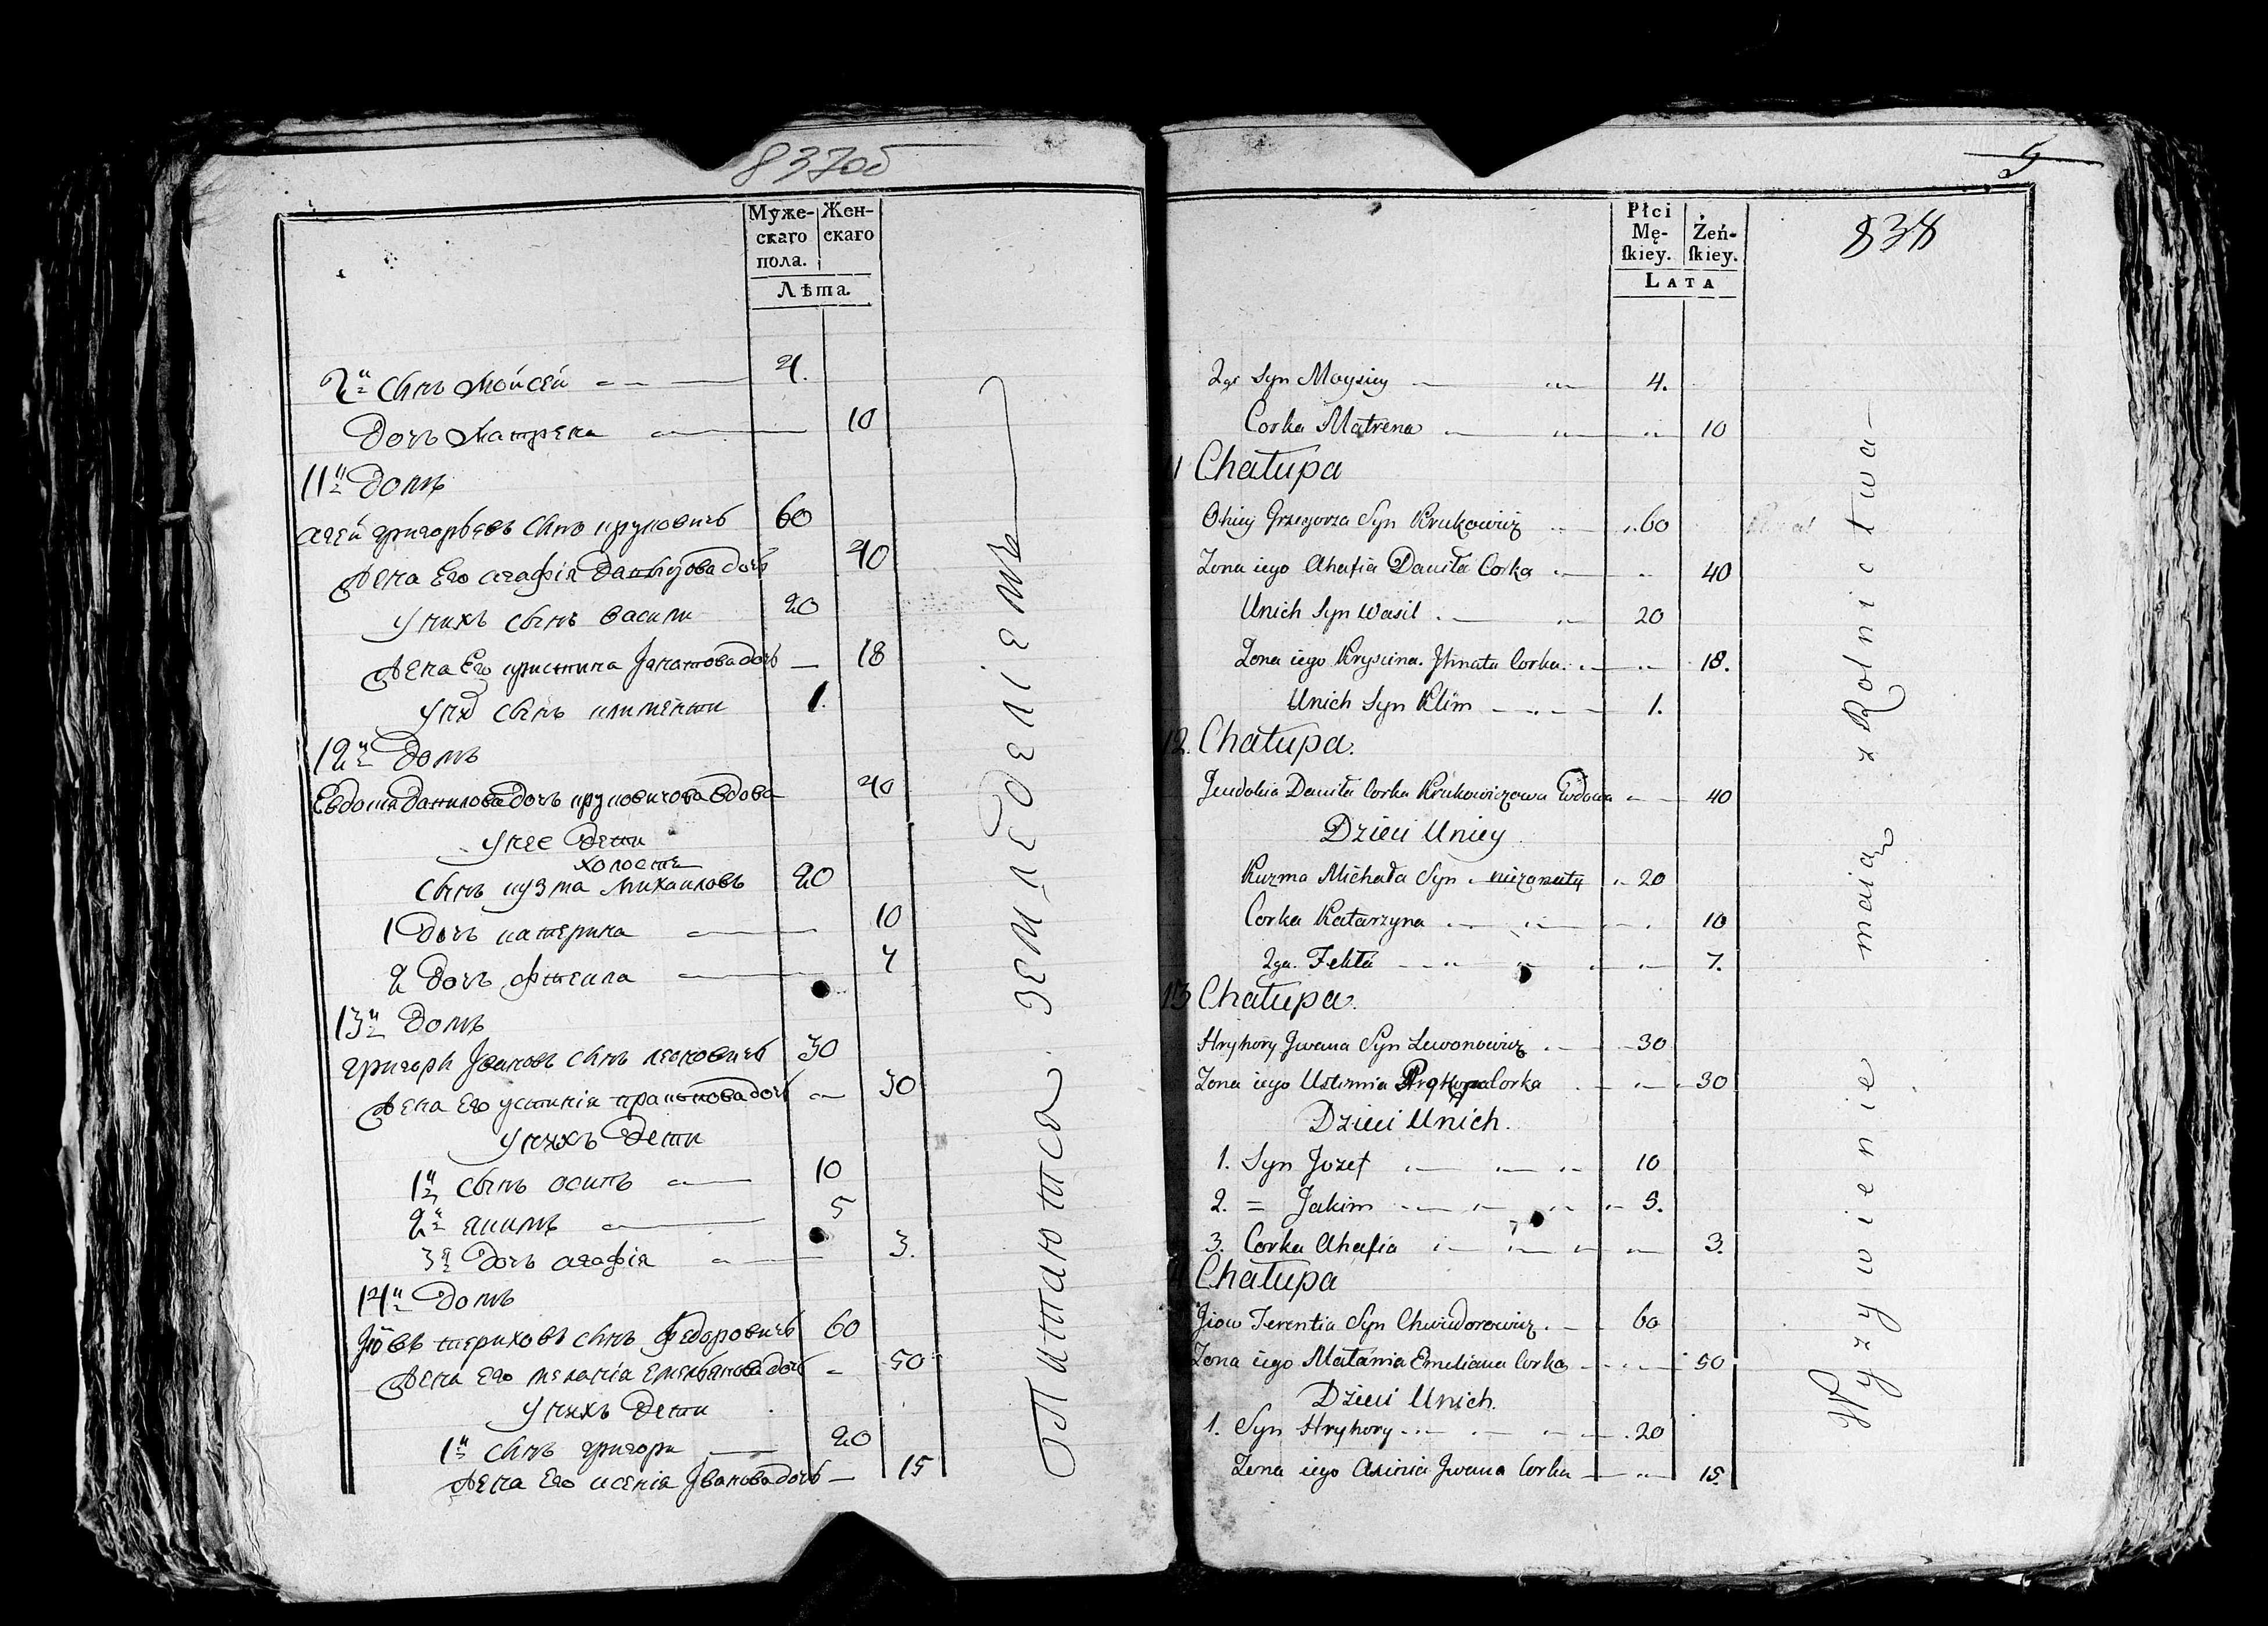 837об
Муже-
скаго
пола.
Жен-
скаго
Лѣта.
2й сынъ Мойсей 4.
Дочь Матрена 10
11й Домъ
агей григорьевъ сынъ круковичъ 60
жена Его агафія данилова дочь 40
у нихъ сынъ василий 20
жена Его кристина Jгнатова дочь 18
у них сынъ климентий 1.
12й Домъ
Евдокия данилова дочь круковичова вдова 40
у нее дети
холостъ
сынъ кузма михаиловъ 20
1 дочь катерина 10
2 дочь фтекла 7
13й Домъ
григори Jвановъ сынъ левоновичъ 30
жена Его устинія пракопова дочь 30
у нихъ дети
1й сынъ осипъ 10
2й якимъ 5
3я дочь агафія 3.
14й Домъ
Jювъ териховъ сынъ федоровичъ 60
жена Его меланія емельянова дочь 50
у нихъ дети
1й сынъ григори 20
жена Его ксенія Jванова дочь 15
Питаютса земледелиемъ
5
838
Płci
Mę-
ſkiey.
Żeń-
ſkiey.
LATA
2gi Syn Moysiey 4.
Corka Matrena 10
Chałupa
Ohiey Grzegorza Syn Krukowicz 60
Zona iego Ahafia Daniła Corka 40
Unich Syn Wasil 20
Zona iego Kryscina Jhnata Corka 18.
Unich Syn Klim 1.
12. Chałupa.
Jeudokia Daniła Corka Krukowiczowa Wdowa 40
Dzieci Uniey
Kuzma Michała Syn niezonaty 20
Corka Katarzyna 10
2ga Fekła 7.
13 Chałupa.
Hryhory Jwana Syn Lewonowicz 30
Zona iego Ustimia Prokopa Corka 30
Dzieci Unich.
1. Syn Jozef 10
2. = Jakim 5.
3. Corka Ahafia 3.
Chałupa
Jiow Terentia Syn Chwiudorowicz 60
Zona iego Małania Emeliana Corka 50
Dzieci Unich.
1. Syn Hryhory 20
Zona iego Axinia Jwana Corka 15.
Wyzywienie maią z Rolnictwa